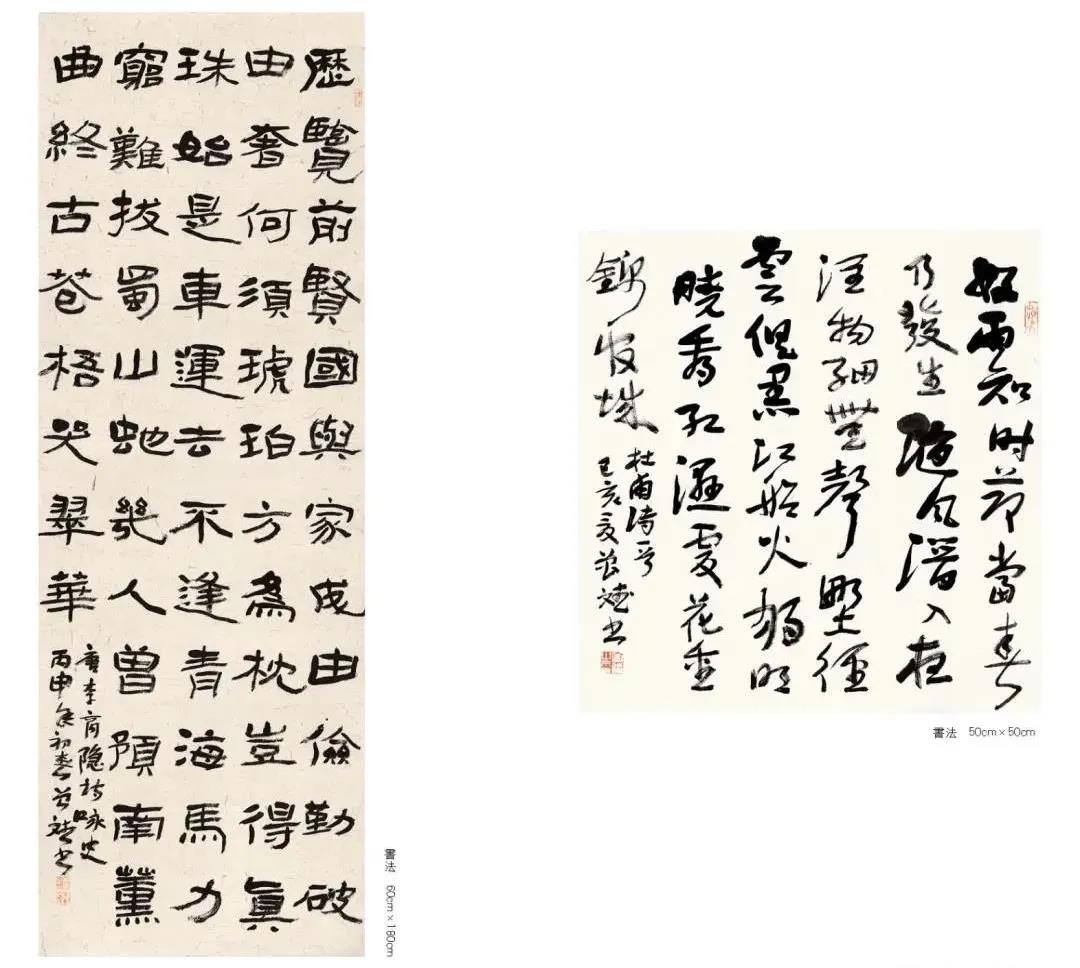 歷覽前賢國與家成由儉勤破
由奢何須琥珀方為枕豈得眞
珠始是車運去不逢青海馬力
窮難拔蜀山蛇幾人曾預南薰
曲終古蒼梧哭翠華
唐李商隐诗咏史
丙申年初春书
書法 60cm×180cm
好雨知时节當春
乃發生随风潜入夜
润物细無聲野径
雲俱黑江船火独明
晓看红濕處花重
錦官城
杜甫诗
己亥夏书
書法 50cm×50cm